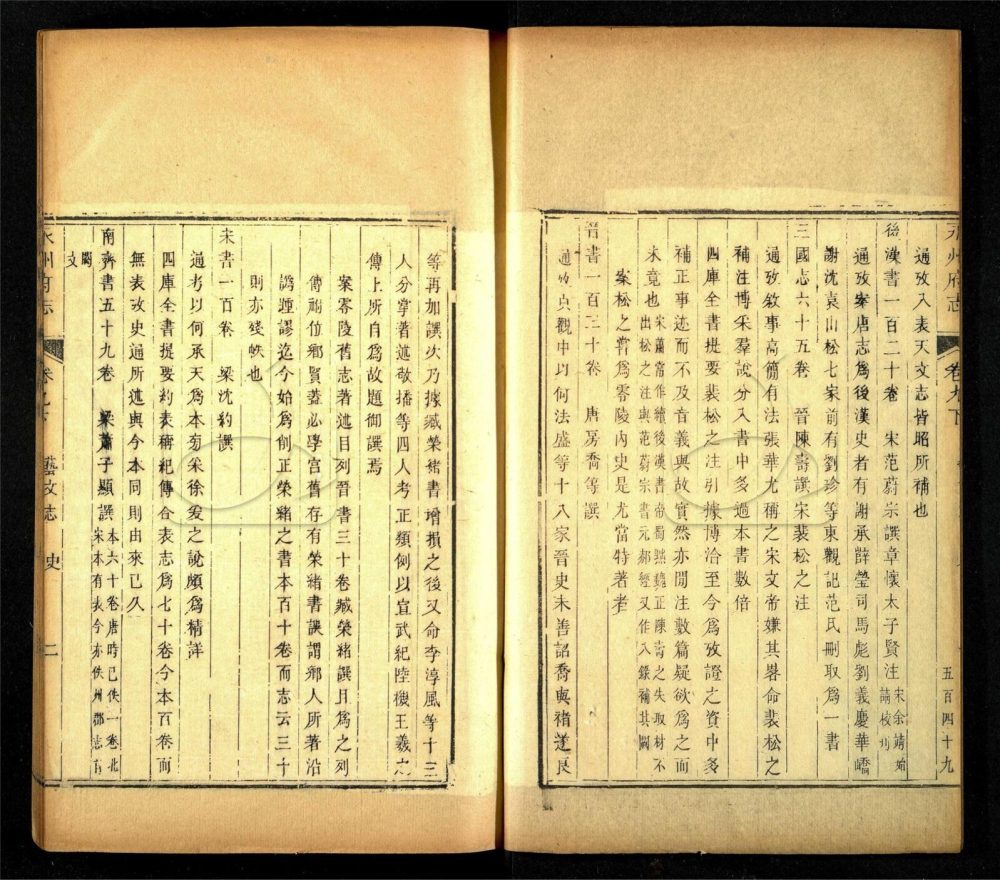 永州府志 卷九下
五百四十九
通攷入表天文志皆昭所補也
後漢書一百二十卷 宋范蔚宗譔章懷太子賢注 宋余靖始請校刋
通攷案唐志爲後漢史者有謝承薛瑩司馬彪劉義慶華嶠
謝沈袁山松七家前有劉珍等東觀記范氏刪取爲一書
三國志六十五卷 晉陳壽譔宋裴松之注
通攷敘事高簡有法張華尤稱之宋文帝嫌其畧命裴松之
補注博采羣說分入書中多過本書數倍
四庫全書提要裴松之注引據博洽至今爲攷證之資中多
補正事迹而不及音義與故實然亦閒注數篇疑欲爲之而
未竟也 宋蕭常作續後漢書帝蜀黜魏正陳壽之失取材不出松之注與范蔚宗書元郝經又作八錄補其闕
案松之嘗爲零陵內史是尤當特著者
晉書一百三十卷 唐房喬等譔
通攷貞觀中以何法盛等十八家晉史未善詔喬與褚遂良
等再加譔次乃據臧榮緒書增損之後又命李淳風等十三
人分掌著述敬播等四人考正類例以宣武紀陸機王羲之
傳上所自爲故題御譔焉
案零陵舊志著述目列晉書三十卷臧榮緒譔且爲之列
傳祠位鄉賢蓋必學宮舊存有榮緒書誤謂鄉人所著沿
譌踵謬迄今始爲削正榮緒之書本百十卷而志云三十
則亦殘帙也
宋書一百卷 梁沈約譔
通考以何承天爲本旁采徐爰之說頗爲精詳
四庫全書提要約表稱紀傳合表志爲七十卷今本百卷而
無表攷史通所述與今本同則由來已久
南齊書五十九卷 梁蕭子顯譔 本六十卷唐時已佚一卷北宋本有表今亦佚州郡志有
闕文
永州府志 卷九下 藝文志 史 二